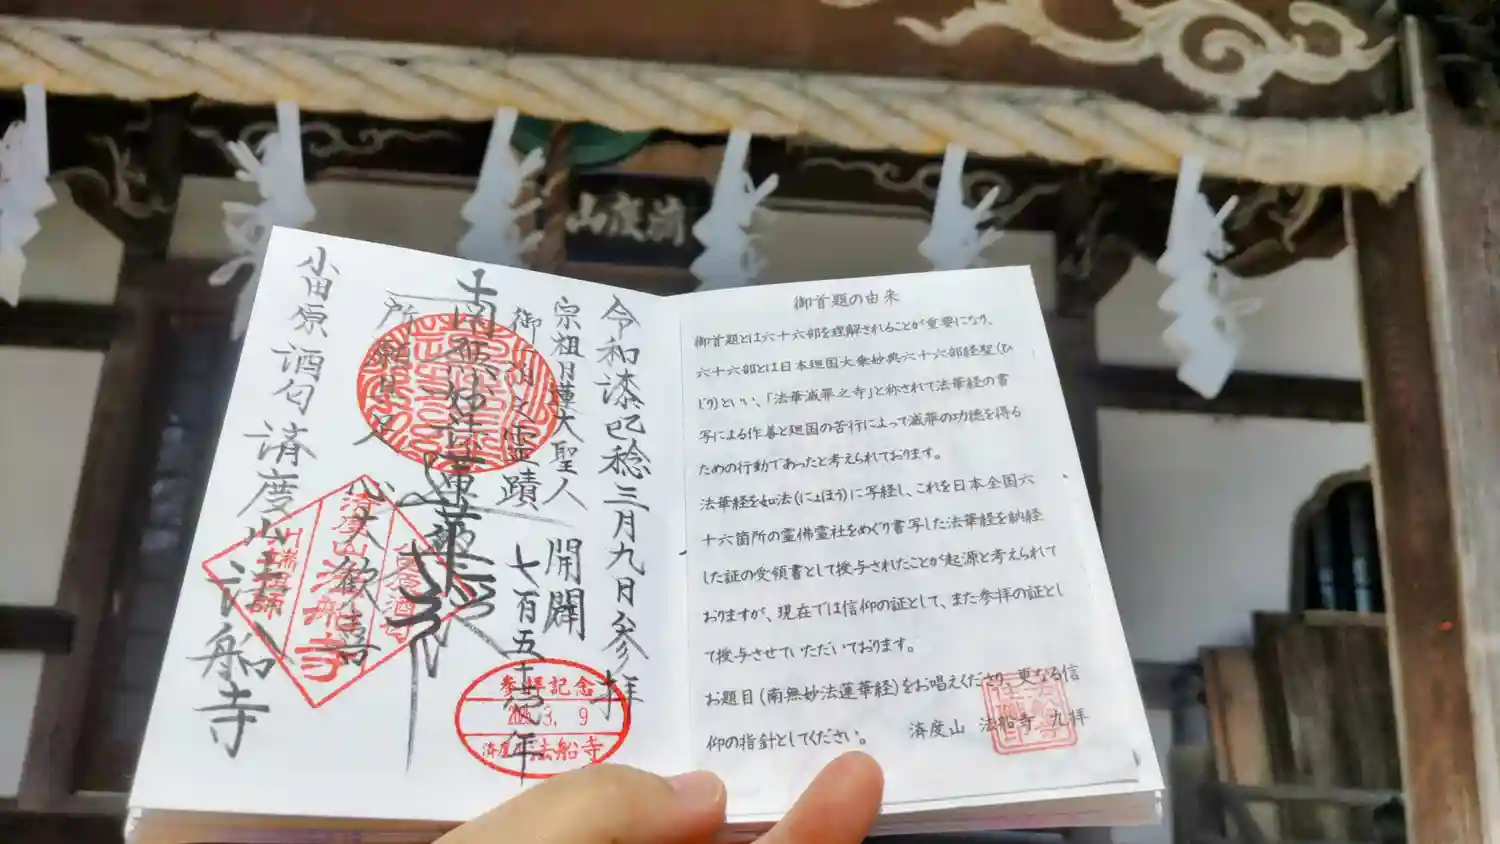 済度山
令和漆乙巳稔三月九日参拝
宗祖日蓮大聖人 開闢
御消之霊蹟 七百五十年
南無妙法蓮華経
心大歓喜
小田原酒匂済度山法船寺
済度山法船寺
参拝記念
3. 9
済度山法船寺
御首題の由来
御首題とは六十六部を理解されることが重要になり、
六十六部とは日本廻国大乗妙典六十六部経聖(ひ
じり)といい、「法華滅罪之寺」と称されて法華経の書
写による作善と廻国の苦行によって滅罪の功徳を得る
ための行動であったと考えられております。
法華経を如法(にょほう)に写経し、これを日本全国六
十六箇所の霊佛霊社をめぐり書写した法華経を納経
した証の受領書として授与されたことが起源と考えられて
おりますが、現在では信仰の証として、また参拝の証とし
て授与させていただいております。
お題目(南無妙法蓮華経)をお唱えくださり、更なる信
仰の指針としてください。 済度山 法船寺 九拝